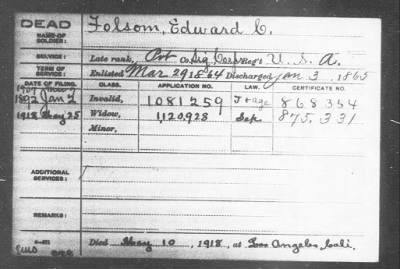 DEAD
NAME OF SOLDIER: Folsom, Edward C.
SERVICE: Late rank, Pvt Co. Sig. Corps Reg't U. S. A.
TERM OF SERVICE: Enlisted Mar 29 1864 Discharged Jan 3, 1865
DATE OF FILING. CLASS. APPLICATION NO. LAW. CERTIFICATE NO.
1892 Jan 2 Invalid, 1081259 868354
1918 May 25 Widow, 1,120,928 Sep. 875.331
Minor,
ADDITIONAL SERVICES:
REMARKS:
Died May 10, 1918, at Los Angeles, Cali.